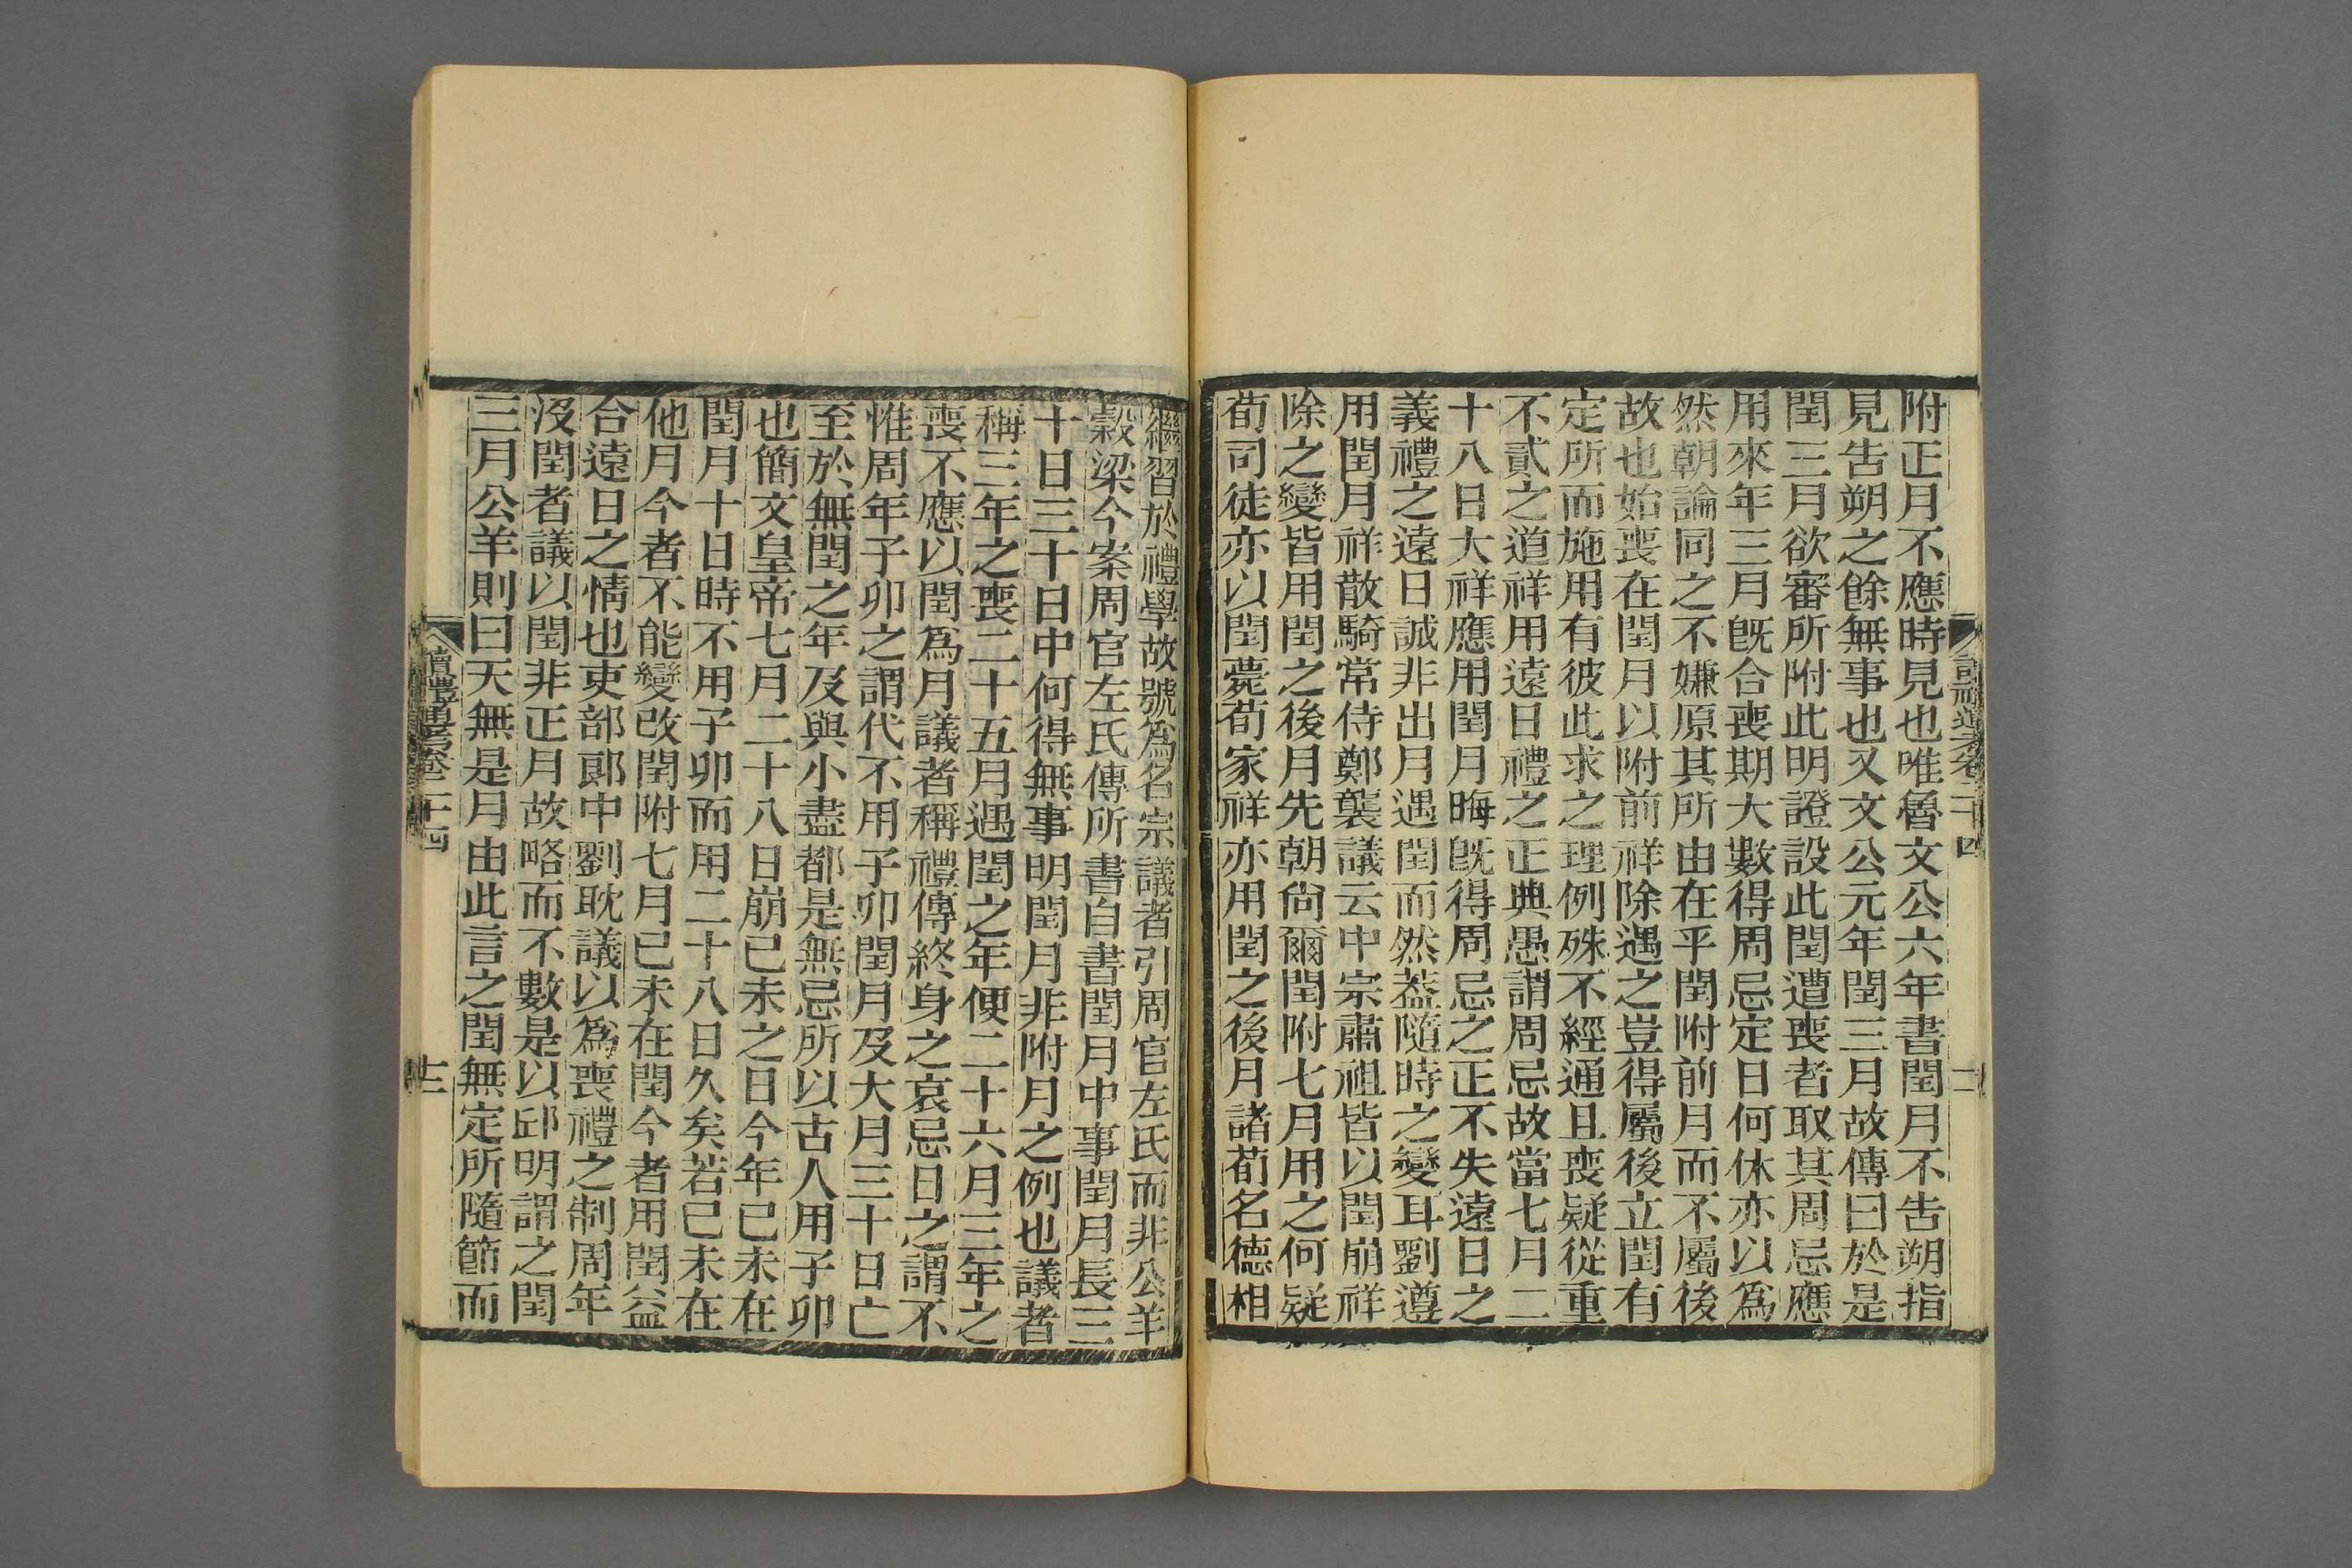 附正月不應時見也唯魯文公六年書閏月不告朔指
見告朔之餘無事也又文公元年閏三月故傳曰於是
閏三月欲審所附此明證設此閏遭喪者取其周忌應
用來年三月旣合喪期大數得周忌定日何休亦以爲
然朝論同之不嫌原其所由在乎閏附前月而不屬後
故也始喪在閏月以附前祥除遇之豈得屬後立閏有
定所而施用有彼此求之理例殊不經通且喪疑從重
不貳之道祥用遠日禮之正典愚謂周忌故當七月二
十八日大祥應用閏月晦旣得周忌之正不失遠日之
義禮之遠日誠非出月遇閏而然蓋隨時之變耳劉遵
用閏月祥散騎常侍鄭襲議云中宗肅祖皆以閏崩祥
除之變皆用閏之後月先朝尙爾閏附七月用之何疑
荀司徒亦以閏薨荀家祥亦用閏之後月諸荀名德相
繼習於禮學故號爲名宗議者引周官左氏而非公羊
穀梁今案周官左氏傳所書自書閏月中事閏月長三
十日三十日中何得無事明閏月非附月之例也議者
稱三年之喪二十五月遇閏之年便二十六月三年之
喪不應以閏爲月議者稱禮傳終身之哀忌日之謂不
惟周年子卯之謂代不用子卯閏月及大月三十日亡
至於無閏之年及與小盡都是無忌所以古人用子卯
也簡文皇帝七月二十八日崩已未之日今年已未在
閏月十日時不用子卯而用二十八日久矣若已未在
他月今者不能變改閏附七月已未在閏今者用閏益
合遠日之情也吏部郎中劉耽議以爲喪禮之制周年
沒閏者議以閏非正月故略而不數是以邱明謂之閏
三月公羊則曰天無是月由此言之閏無定所隨節而
讀禮通考卷二十四